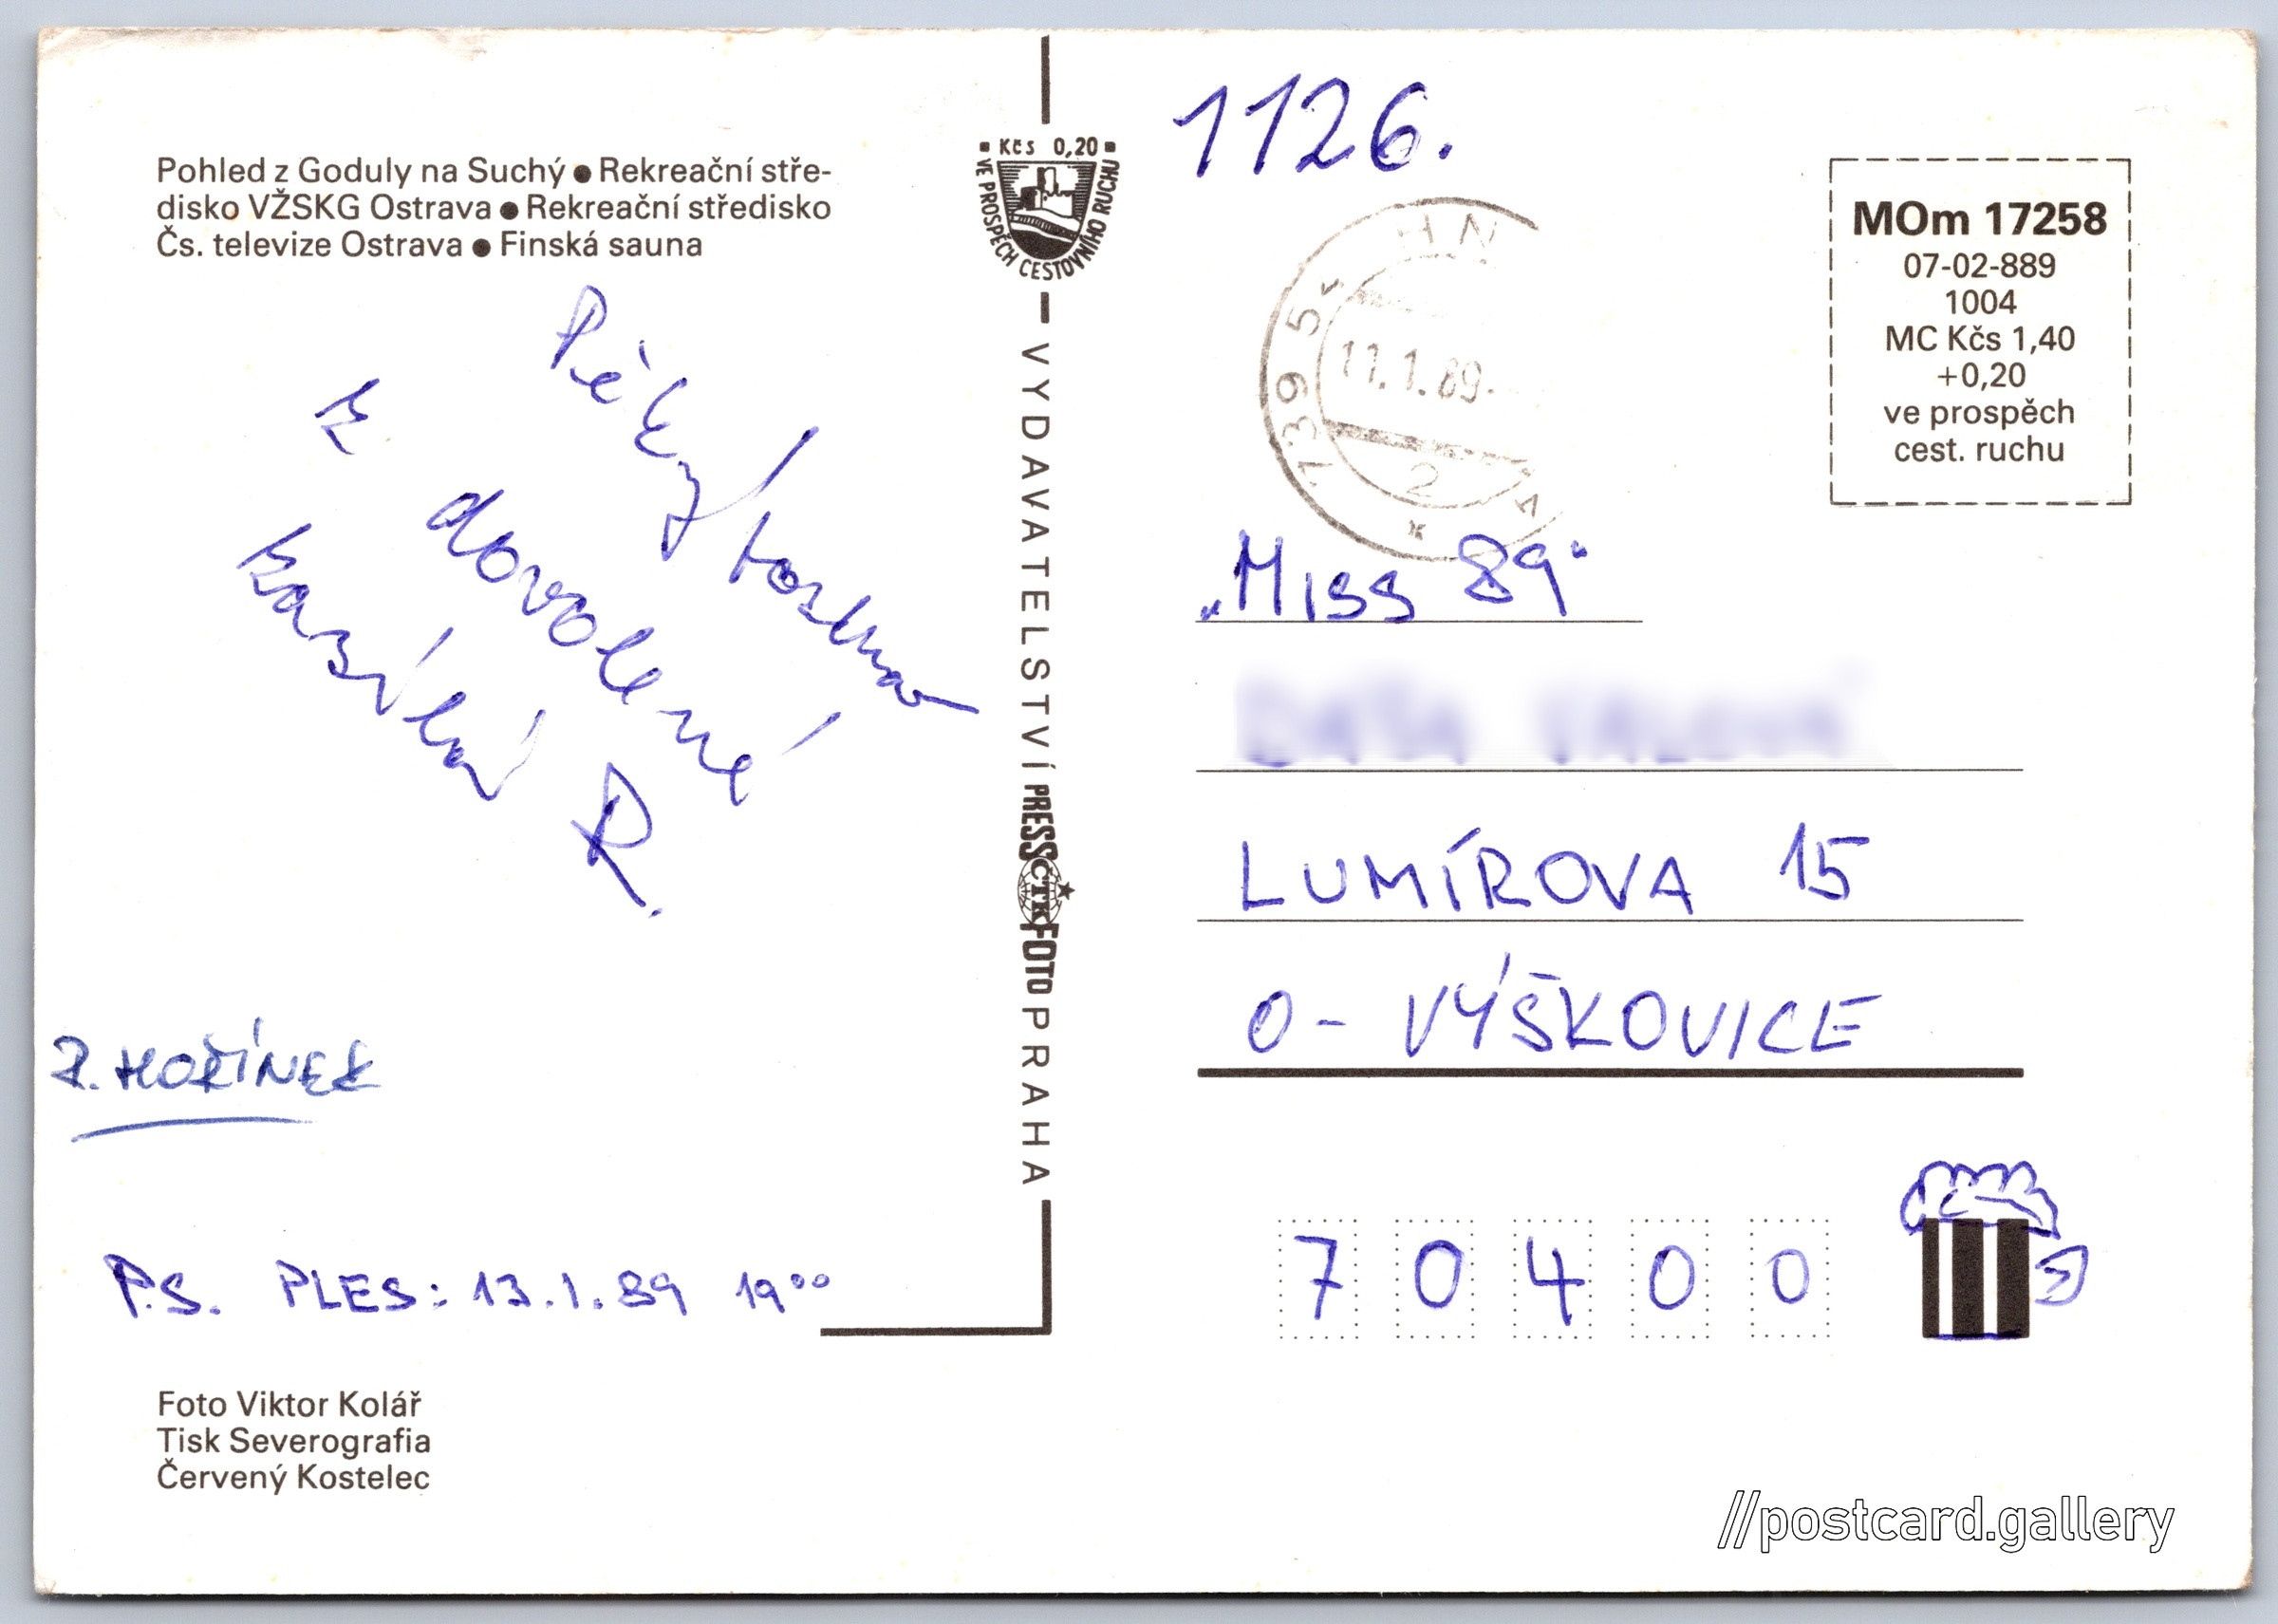 Pohled z Goduly na Suchý ● Rekreační stře-
disko VŽSKG Ostrava ● Rekreační středisko
Čs. televize Ostrava ● Finská sauna
Kčs 0,20
VE PROSPĚCH CESTOVNÍHO RUCHU
Pěkný
z dovolené
R.
R. HOŘÍNEK
P.S. PLES: 13.1.89 19⁰⁰
Foto Viktor Kolář
Tisk Severografia
Červený Kostelec
VYDAVATELSTVÍ PRESSFOTO PRAHA
ČTK
1126.
739 5
HN
11.1.89
2
MOm 17258
07-02-889
1004
MC Kčs 1,40
+0,20
ve prospěch
cest. ruchu
„Miss 89"
LUMÍROVA 15
O- VÝŠKOVICE
70400
//postcard.gallery